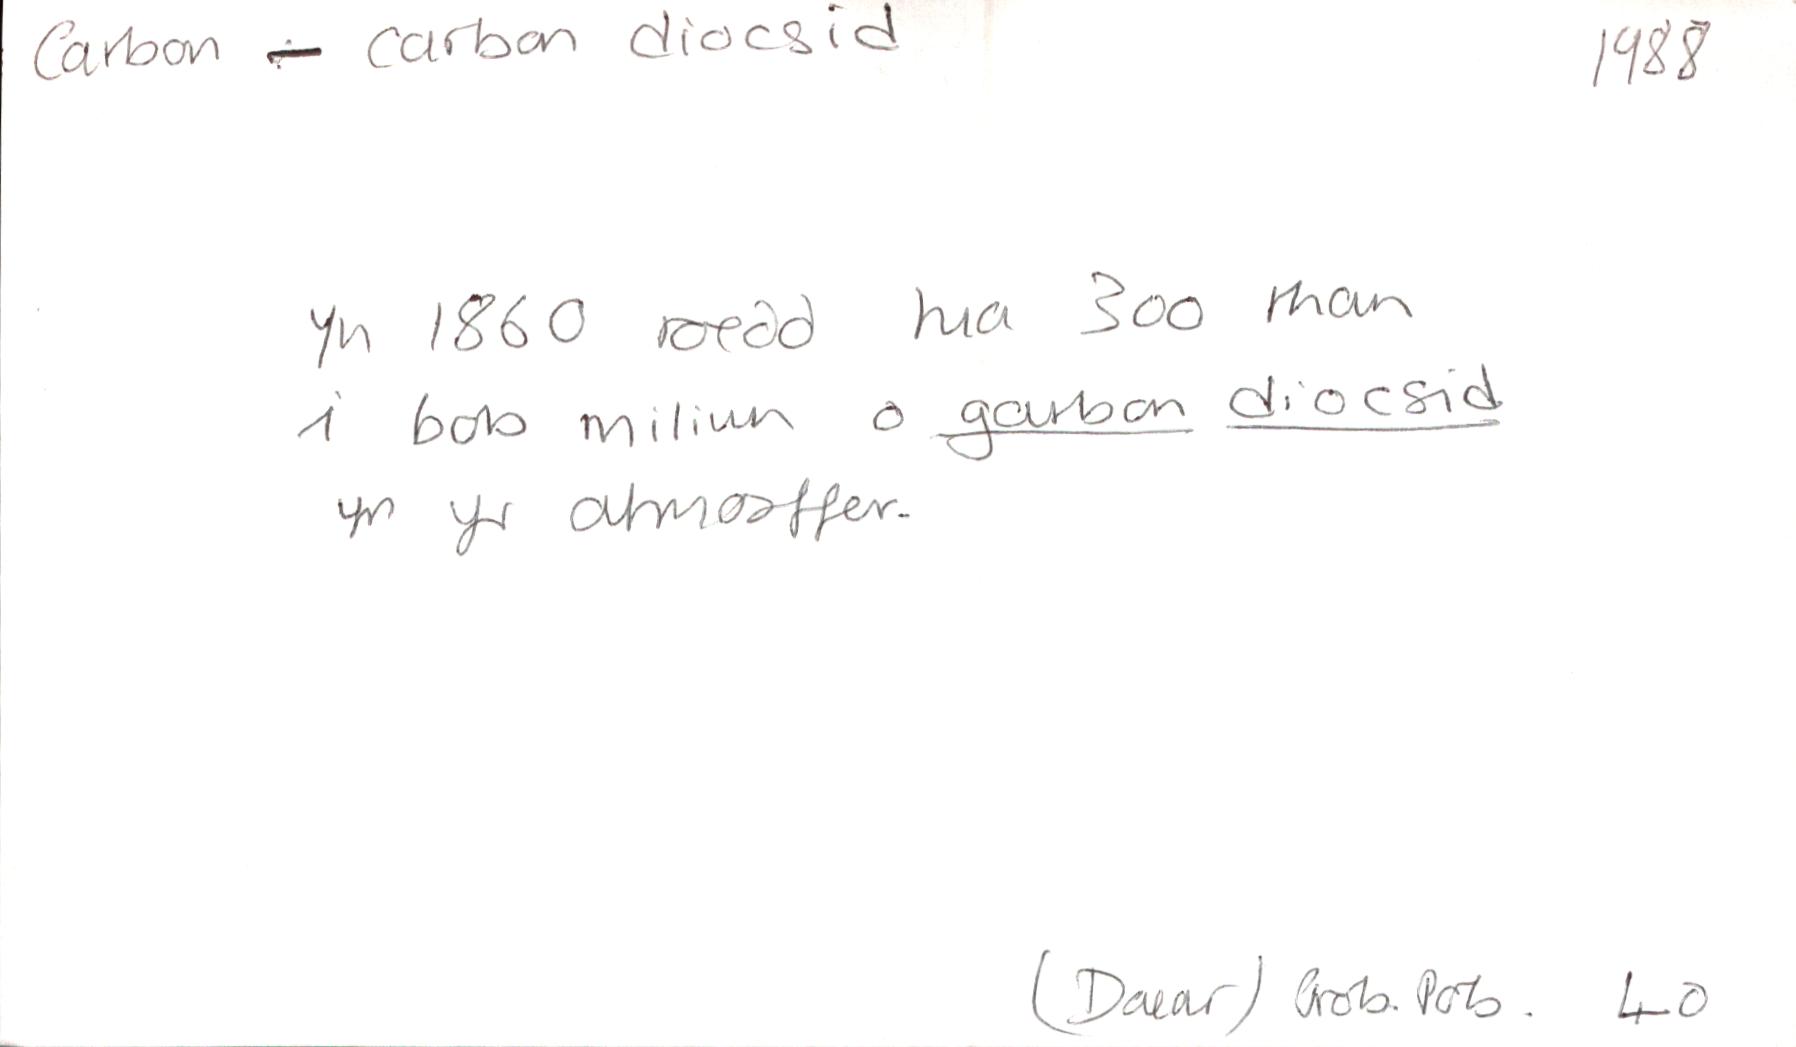 Carbon - carbon diocsid 1988
yn 1860 roedd hua 300 rhan
i bob miliwn o garbon diocsid
yn yr atmosffer.
(Daear) Prob. Pob. 40